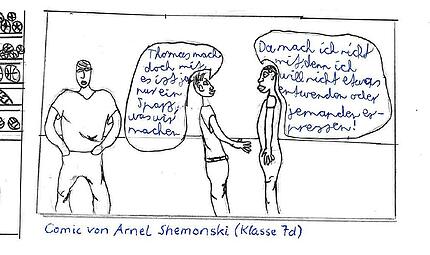 Thomas mach
doch mit,
es ist ja
nur ein
Spaß,
was wir
machen
Da mach ich nicht
mit denn ich
will nicht etwas
entwenden oder
jemanden er-
pressen!
Comic von Arnel Shemonski (Klasse 7d)